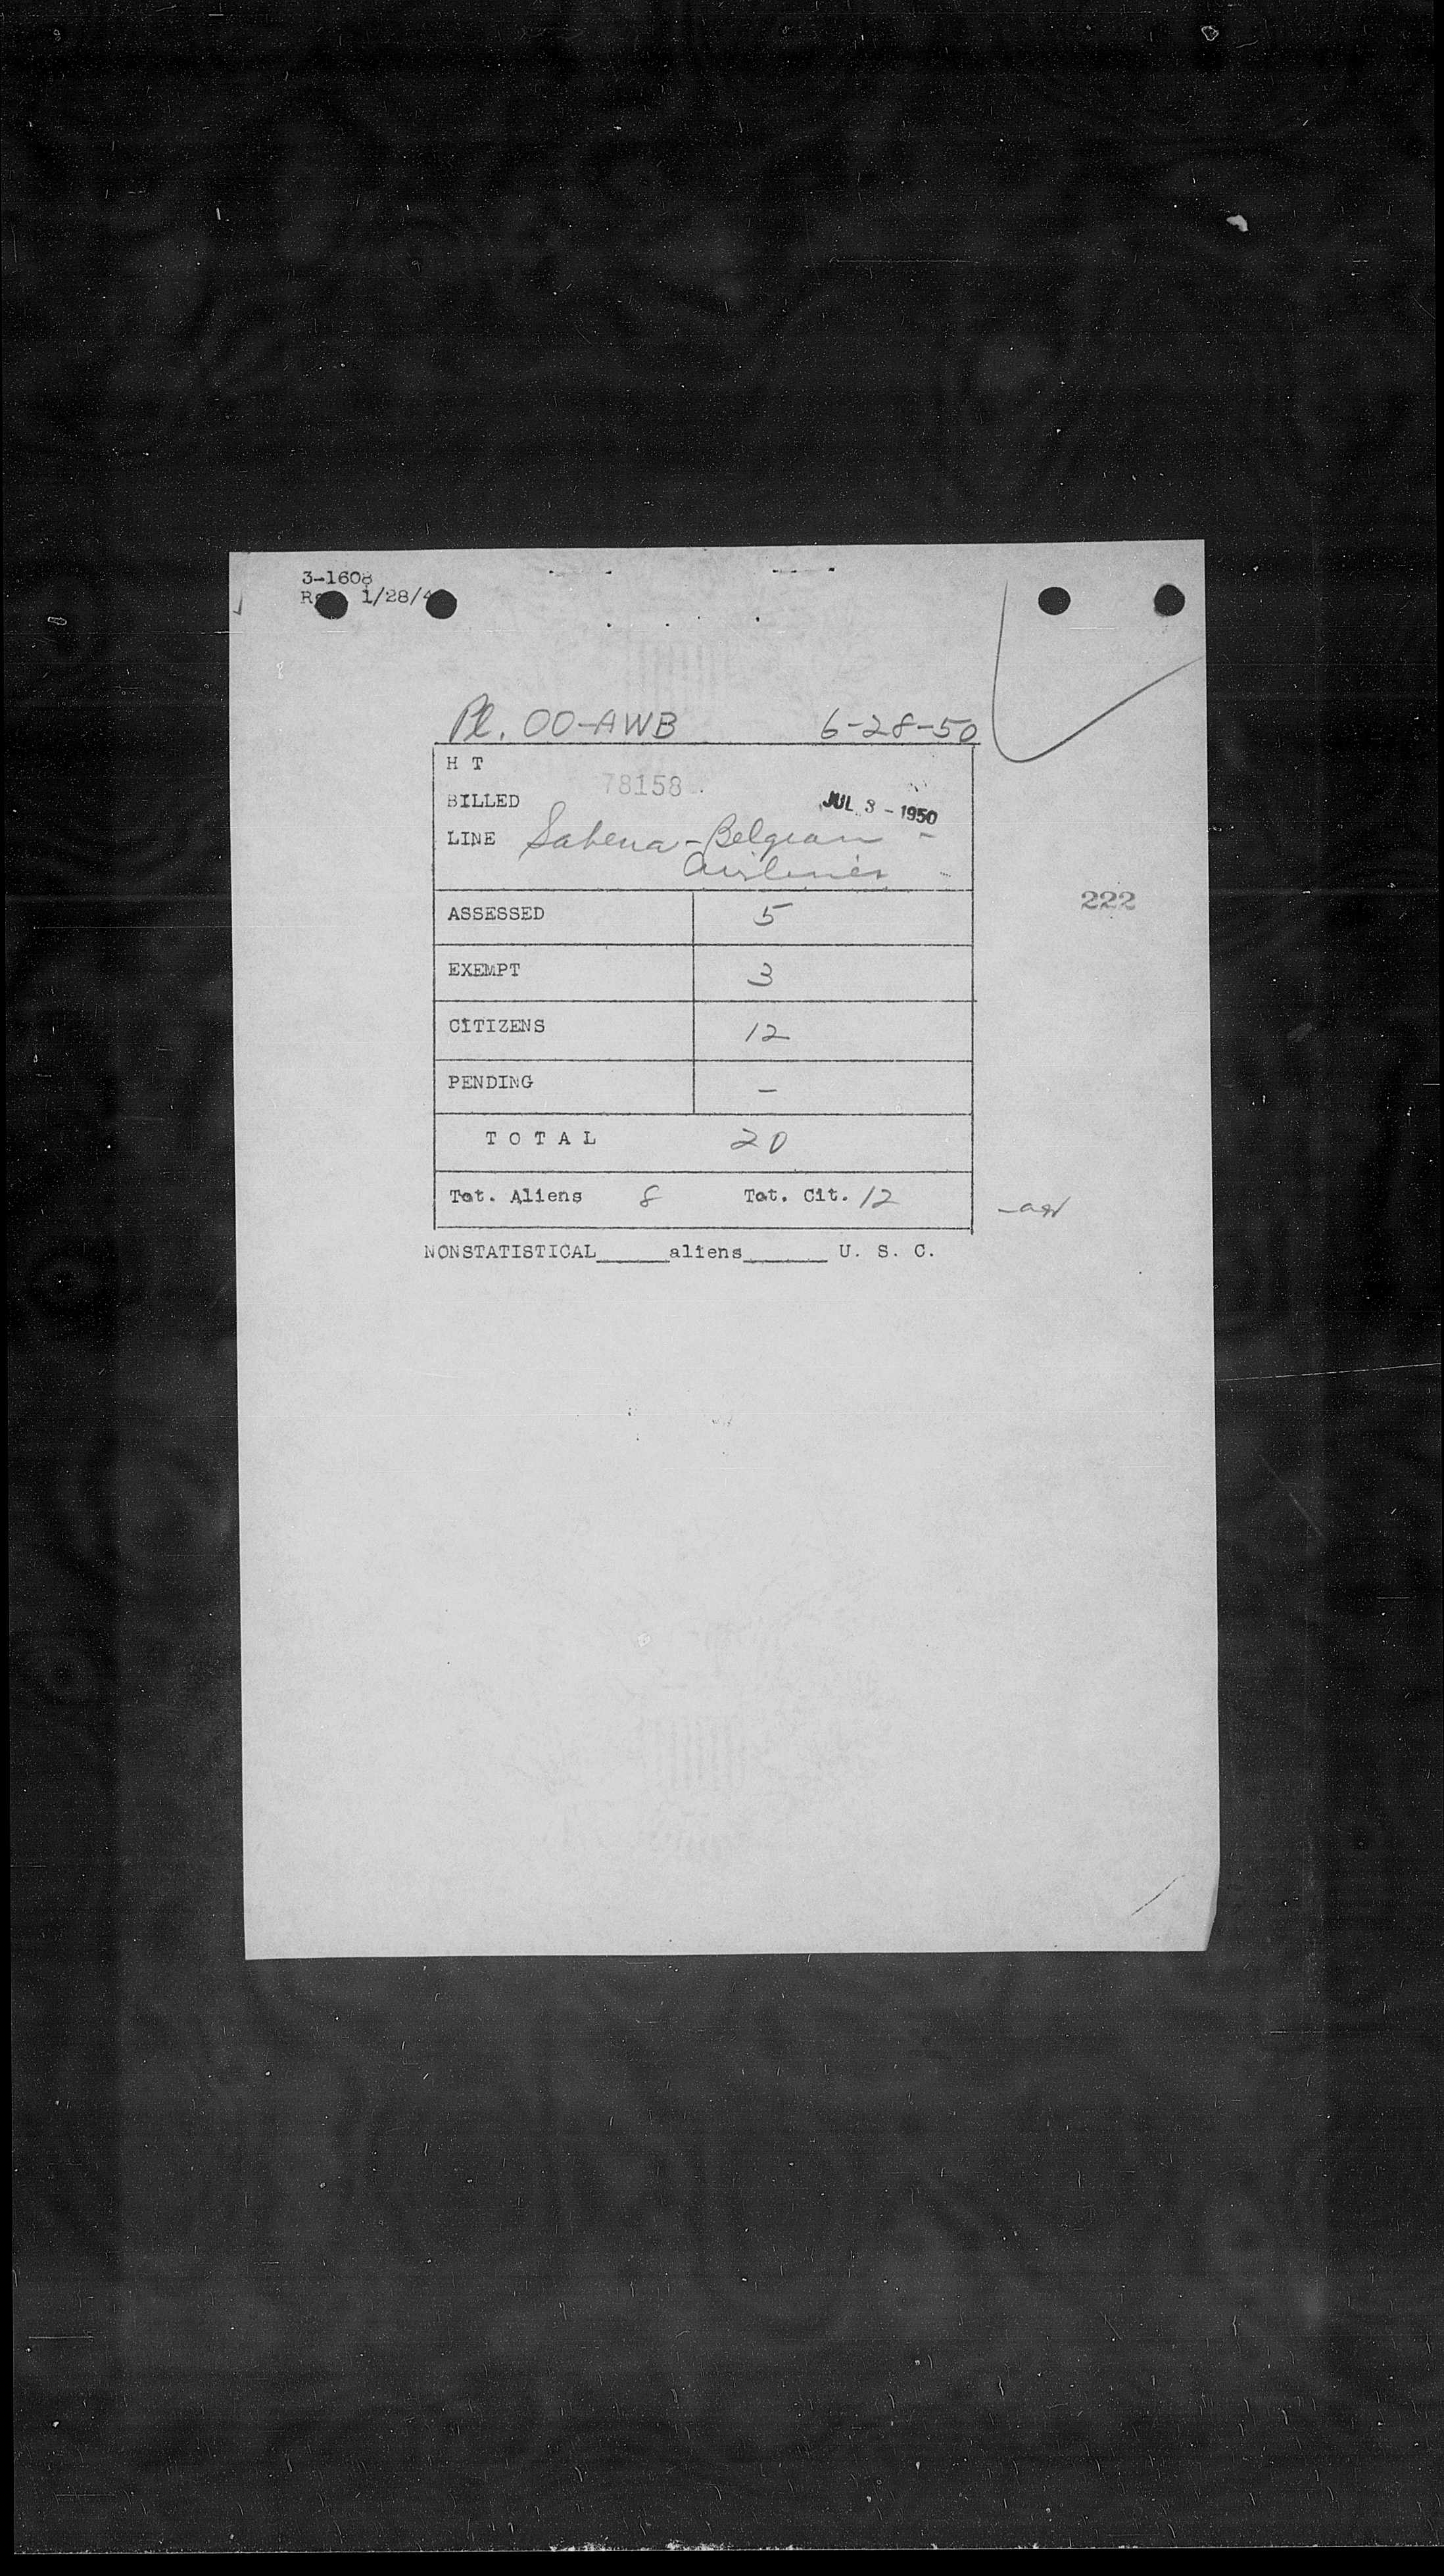 3-1608
1/28/4
Pl. OO-AWB 6-28-50
H T
78158
BILLED
JUL 3 - 1950
LINE Sabena - Belgian
Airlines
222
ASSESSED 5
EXEMPT 3
CITIZENS 12
PENDING –
T O T A L 20
Tot. Aliens 8 Tot. Cit. 12
NONSTATISTICAL______aliens_______ U. S. C.